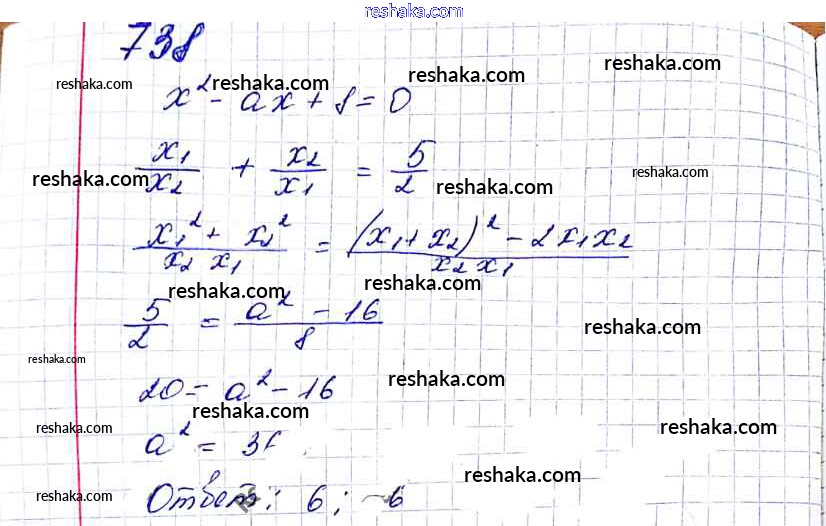 reshaka.com
738
reshaka.com reshaka.com reshaka.com reshaka.com
x² - ax + 8 = 0
reshaka.com reshaka.com reshaka.com
x₁/x₂ + x₂/x₁ = 5/2
(x₁² + x₂²)/(x₂ x₁) = ((x₁ + x₂)² - 2x₁x₂)/(x₂ x₁)
reshaka.com reshaka.com
5/2 = (a² - 16)/8
reshaka.com
reshaka.com reshaka.com
20 = a² - 16
reshaka.com reshaka.com reshaka.com
a² = 36
reshaka.com reshaka.com
Ответ: 6; -6